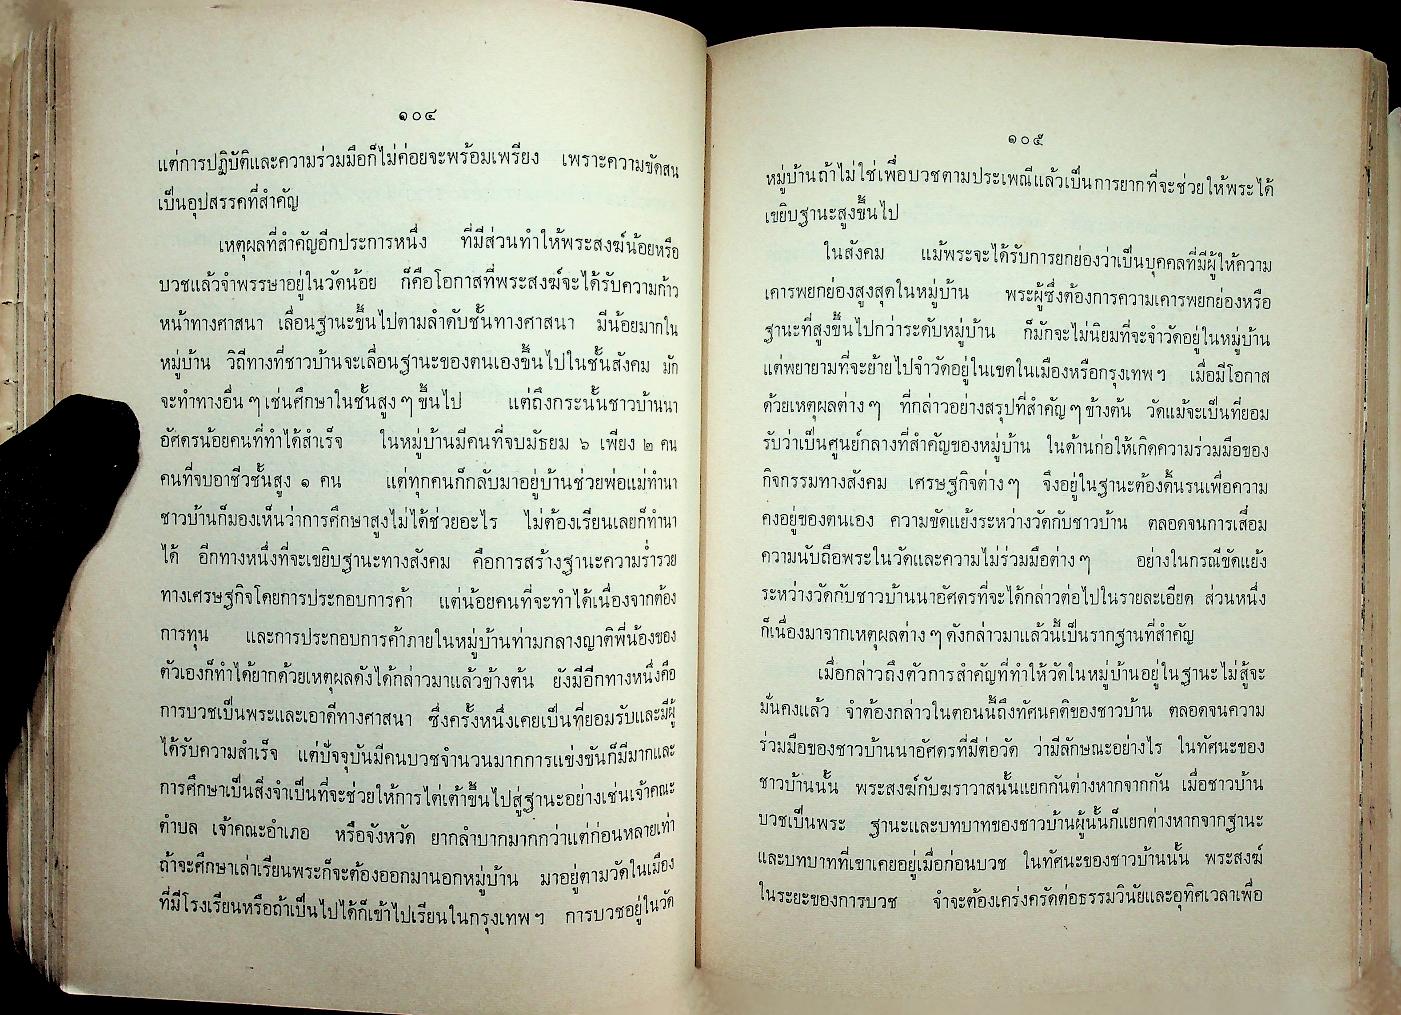 ๑๐๔
แต่การปฏิบัติและความร่วมมือก็ไม่ค่อยจะพร้อมเพรียง เพราะความขัดสน
เป็นอุปสรรคที่สำคัญ
เหตุผลที่สำคัญอีกประการหนึ่ง ที่มีส่วนทำให้พระสงฆ์น้อยหรือ
บวชแล้วจำพรรษาอยู่ในวัดน้อย ก็คือโอกาสที่พระสงฆ์จะได้รับความก้าว
หน้าทางศาสนา เลื่อนฐานะขึ้นไปตามลำดับชั้นทางศาสนา มีน้อยมากใน
หมู่บ้าน วิถีทางที่ชาวบ้านจะเลื่อนฐานะของตนเองขึ้นไปในชั้นสังคม มัก
จะทำทางอื่น ๆ เช่นศึกษาในชั้นสูง ๆ ขึ้นไป แต่ถึงกระนั้นชาวบ้านนา
อัศตรน้อยคนที่ทำได้สำเร็จ ในหมู่บ้านมีคนที่จบมัธยม ๖ เพียง ๒ คน
คนที่จบอาชีวชั้นสูง ๑ คน แต่ทุกคนก็กลับมาอยู่บ้านช่วยพ่อแม่ทำนา
ชาวบ้านก็มองเห็นว่าการศึกษาสูงไม่ได้ช่วยอะไร ไม่ต้องเรียนเลยก็ทำนา
ได้ อีกทางหนึ่งที่จะเขยิบฐานะทางสังคม คือการสร้างฐานะความร่ำรวย
ทางเศรษฐกิจโดยการประกอบการค้า แต่น้อยคนที่จะทำได้เนื่องจากต้อง
การทุน และการประกอบการค้าภายในหมู่บ้านท่ามกลางญาติพี่น้องของ
ตัวเองก็ทำได้ยากด้วยเหตุผลดังได้กล่าวมาแล้วข้างต้น ยังมีอีกทางหนึ่งคือ
การบวชเป็นพระและเอาดีทางศาสนา ซึ่งครั้งหนึ่งเคยเป็นที่ยอมรับและมีผู้
ได้รับความสำเร็จ แต่ปัจจุบันมีคนบวชจำนวนมากการแข่งขันก็มีมากและ
การศึกษาเป็นสิ่งจำเป็นที่จะช่วยให้การไต่เต้าขึ้นไปสู่ฐานะอย่างเช่นเจ้าคณะ
ตำบล เจ้าคณะอำเภอ หรือจังหวัด ยากลำบากมากกว่าแต่ก่อนหลายเท่า
ถ้าจะศึกษาเล่าเรียนพระก็จะต้องออกมานอกหมู่บ้าน มาอยู่ตามวัดในเมือง
ที่มีโรงเรียนหรือถ้าเป็นไปได้ก็เข้าไปเรียนในกรุงเทพฯ การบวชอยู่ในวัด
๑๐๕
หมู่บ้านถ้าไม่ใช่เพื่อบวชตามประเพณีแล้วเป็นการยากที่จะช่วยให้พระได้
เขยิบฐานะสูงขึ้นไป
ในสังคม แม้พระจะได้รับการยกย่องว่าเป็นบุคคลที่มีผู้ให้ความ
เคารพยกย่องสูงสุดในหมู่บ้าน พระผู้ซึ่งต้องการความเคารพยกย่องหรือ
ฐานะที่สูงขึ้นไปกว่าระดับหมู่บ้าน ก็มักจะไม่นิยมที่จะจำวัดอยู่ในหมู่บ้าน
แต่พยายามที่จะย้ายไปจำวัดอยู่ในเขตในเมืองหรือกรุงเทพฯ เมื่อมีโอกาส
ด้วยเหตุผลต่าง ๆ ที่กล่าวอย่างสรุปที่สำคัญ ๆ ข้างต้น วัดแม้จะเป็นที่ยอม
รับว่าเป็นศูนย์กลางที่สำคัญของหมู่บ้าน ในด้านก่อให้เกิดความร่วมมือของ
กิจกรรมทางสังคม เศรษฐกิจต่าง ๆ จึงอยู่ในฐานะต้องดิ้นรนเพื่อความ
คงอยู่ของตนเอง ความขัดแย้งระหว่างวัดกับชาวบ้าน ตลอดจนการเสื่อม
ความนับถือพระในวัดและความไม่ร่วมมือต่าง ๆ อย่างในกรณีขัดแย้ง
ระหว่างวัดกับชาวบ้านนาอัศตรที่จะได้กล่าวต่อไปในรายละเอียด ส่วนหนึ่ง
ก็เนื่องมาจากเหตุผลต่าง ๆ ดังกล่าวมาแล้วนี้เป็นรากฐานที่สำคัญ
เมื่อกล่าวถึงตัวการสำคัญที่ทำให้วัดในหมู่บ้านอยู่ในฐานะไม่สู้จะ
มั่นคงแล้ว จำต้องกล่าวในตอนนี้ถึงทัศนคติของชาวบ้าน ตลอดจนความ
ร่วมมือของชาวบ้านนาอัศตรที่มีต่อวัด ว่ามีลักษณะอย่างไร ในทัศนะของ
ชาวบ้านนั้น พระสงฆ์กับฆราวาสนั้นแยกกันต่างหากจากกัน เมื่อชาวบ้าน
บวชเป็นพระ ฐานะและบทบาทของชาวบ้านผู้นั้นก็แยกต่างหากจากฐานะ
และบทบาทที่เขาเคยอยู่เมื่อก่อนบวช ในทัศนะของชาวบ้านนั้น พระสงฆ์
ในระยะของการบวช จำจะต้องเคร่งครัดต่อธรรมวินัยและอุทิศเวลาเพื่อ